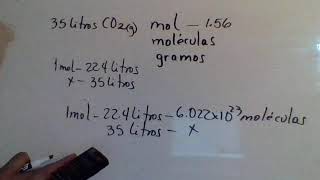 35 litros CO2(g) mol - 1.56
moléculas
gramos
1 mol - 22.4 litros
x - 35 litros
1 mol - 22.4 litros - 6.022x10²³ moléculas
35 litros - x